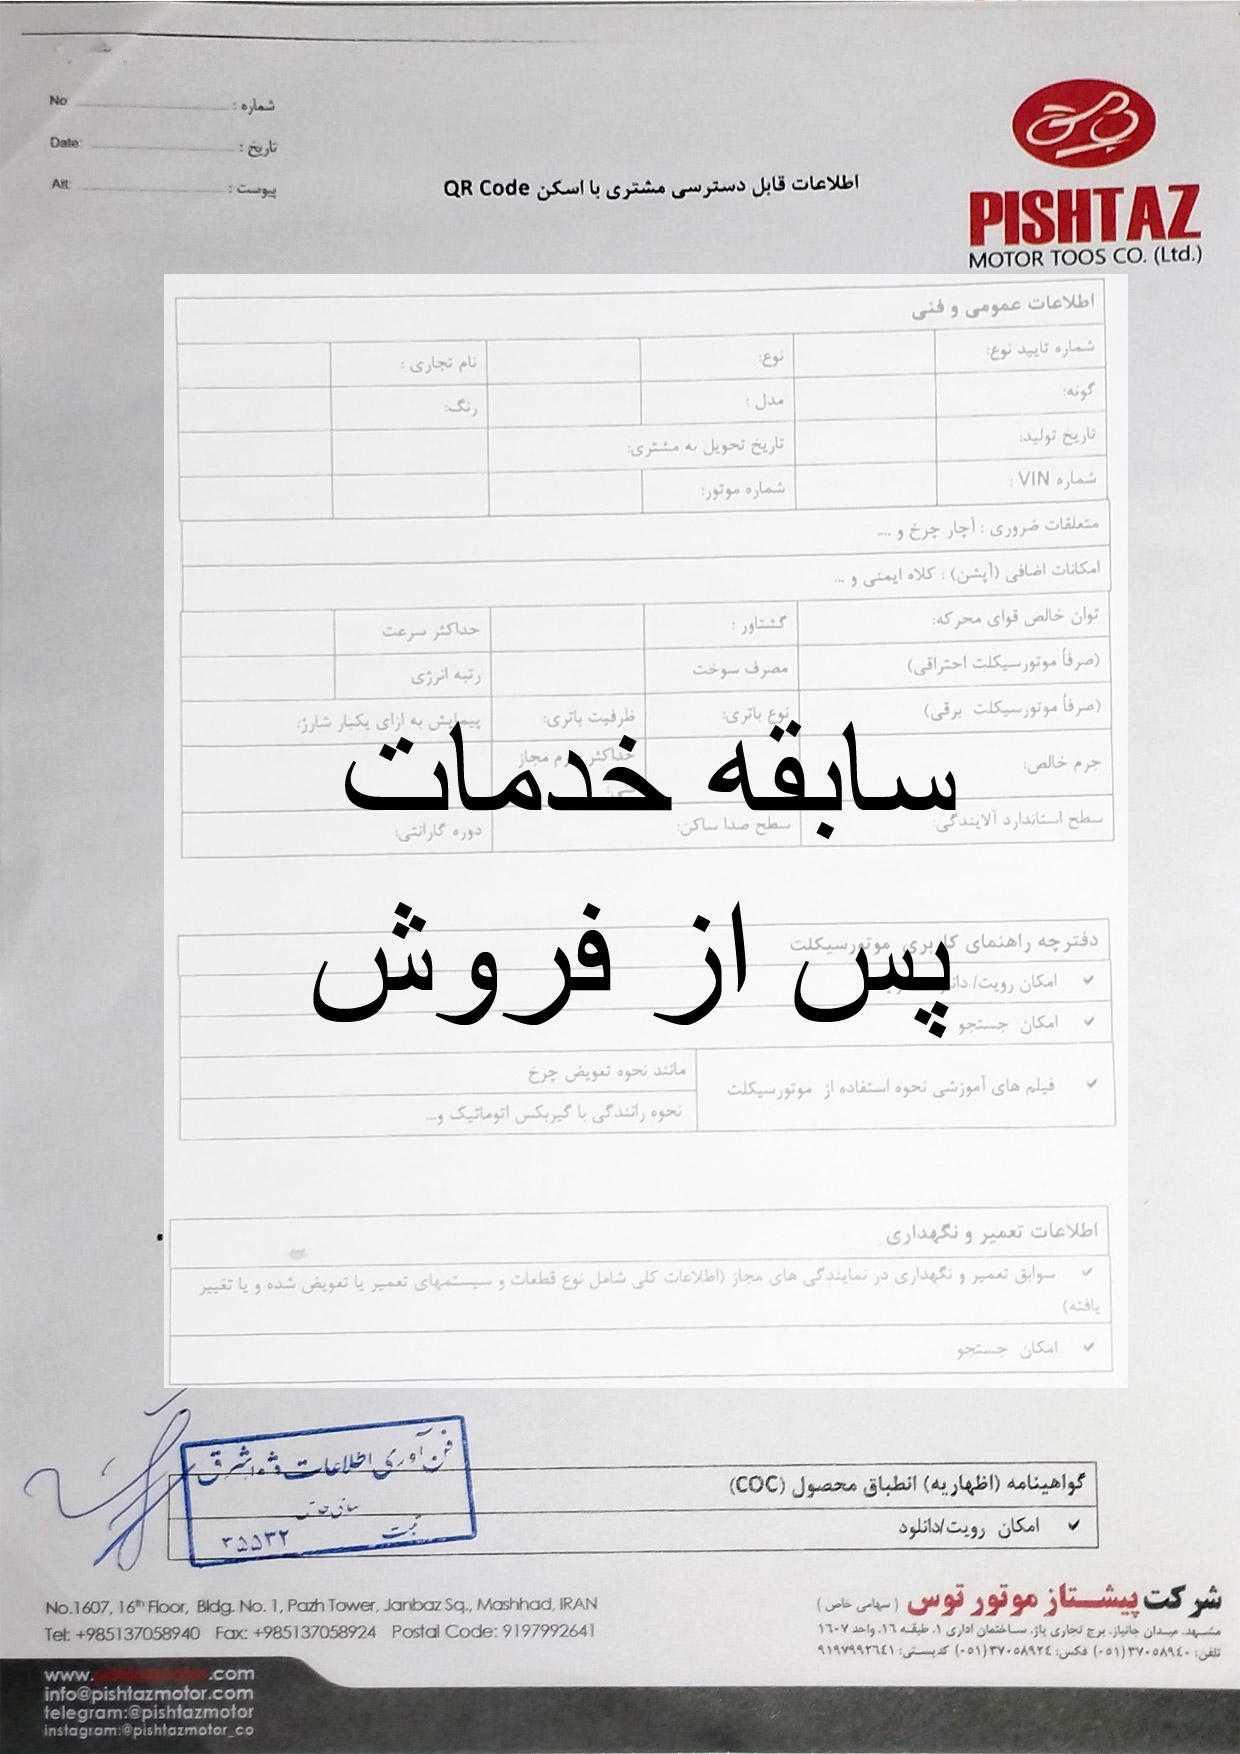 No: شماره :
Date: تاریخ :
Att: پیوست :
PISHTAZ
MOTOR TOOS CO. (Ltd.)
اطلاعات قابل دسترسی مشتری با اسکن QR Code
اطلاعات عمومی و فنی
شماره تایید نوع: نوع: نام تجاری :
گونه: مدل : رنگ:
تاریخ تولید: تاریخ تحویل به مشتری:
شماره VIN : شماره موتور:
متعلقات ضروری : آچار چرخ و ....
امکانات اضافی (آپشن) : کلاه ایمنی و ...
توان خالص قوای محرکه: گشتاور : حداکثر سرعت
(صرفاً موتورسیکلت احتراقی) مصرف سوخت رتبه انرژی
(صرفاً موتورسیکلت برقی) نوع باتری: ظرفیت باتری: پیمایش به ازای یکبار شارژ:
جرم خالص: حداکثر مجاز
سابقه خدمات
سطح استاندارد آلایندگی: سطح صدا ساکن: دوره گارانتی:
پس از فروش
دفترچه راهنمای کاربری موتورسیکلت
✓ امکان رویت/
✓ امکان جستجو
✓ فیلم های آموزشی نحوه استفاده از موتورسیکلت
مانند نحوه تعویض چرخ
نحوه رانندگی با گیربکس اتوماتیک و...
اطلاعات تعمیر و نگهداری
✓ سوابق تعمیر و نگهداری در نمایندگی های مجاز (اطلاعات کلی شامل نوع قطعات و سیستمهای تعمیر یا تعویض شده و یا تغییر
یافته)
✓ امکان جستجو
فن آوری اطلاعات شرق
ثبت ۳۵۵۳۲
گواهینامه (اظهاریه) انطباق محصول (COC)
✓ امکان رویت/دانلود
شرکت پیشتاز موتور توس ( سهامی خاص )
مشهد، میدان جانباز، برج تجاری پاژ، ساختمان اداری ۱، طبقه ۱۶، واحد ۱۶۰۷
تلفن: ۳۷۰۵۸۹۴۰ (۰۵۱) فکس: ۳۷۰۵۸۹۲۴ (۰۵۱) کدپستی: ۹۱۹۷۹۹۲۶۴۱
No.1607, 16th Floor, Bldg. No. 1, Pazh Tower, Janbaz Sq., Mashhad, IRAN
Tel: +985137058940 Fax: +985137058924 Postal Code: 9197992641
www.pishtazmotor.com
info@pishtazmotor.com
telegram:@pishtazmotor
instagram:@pishtazmotor_co